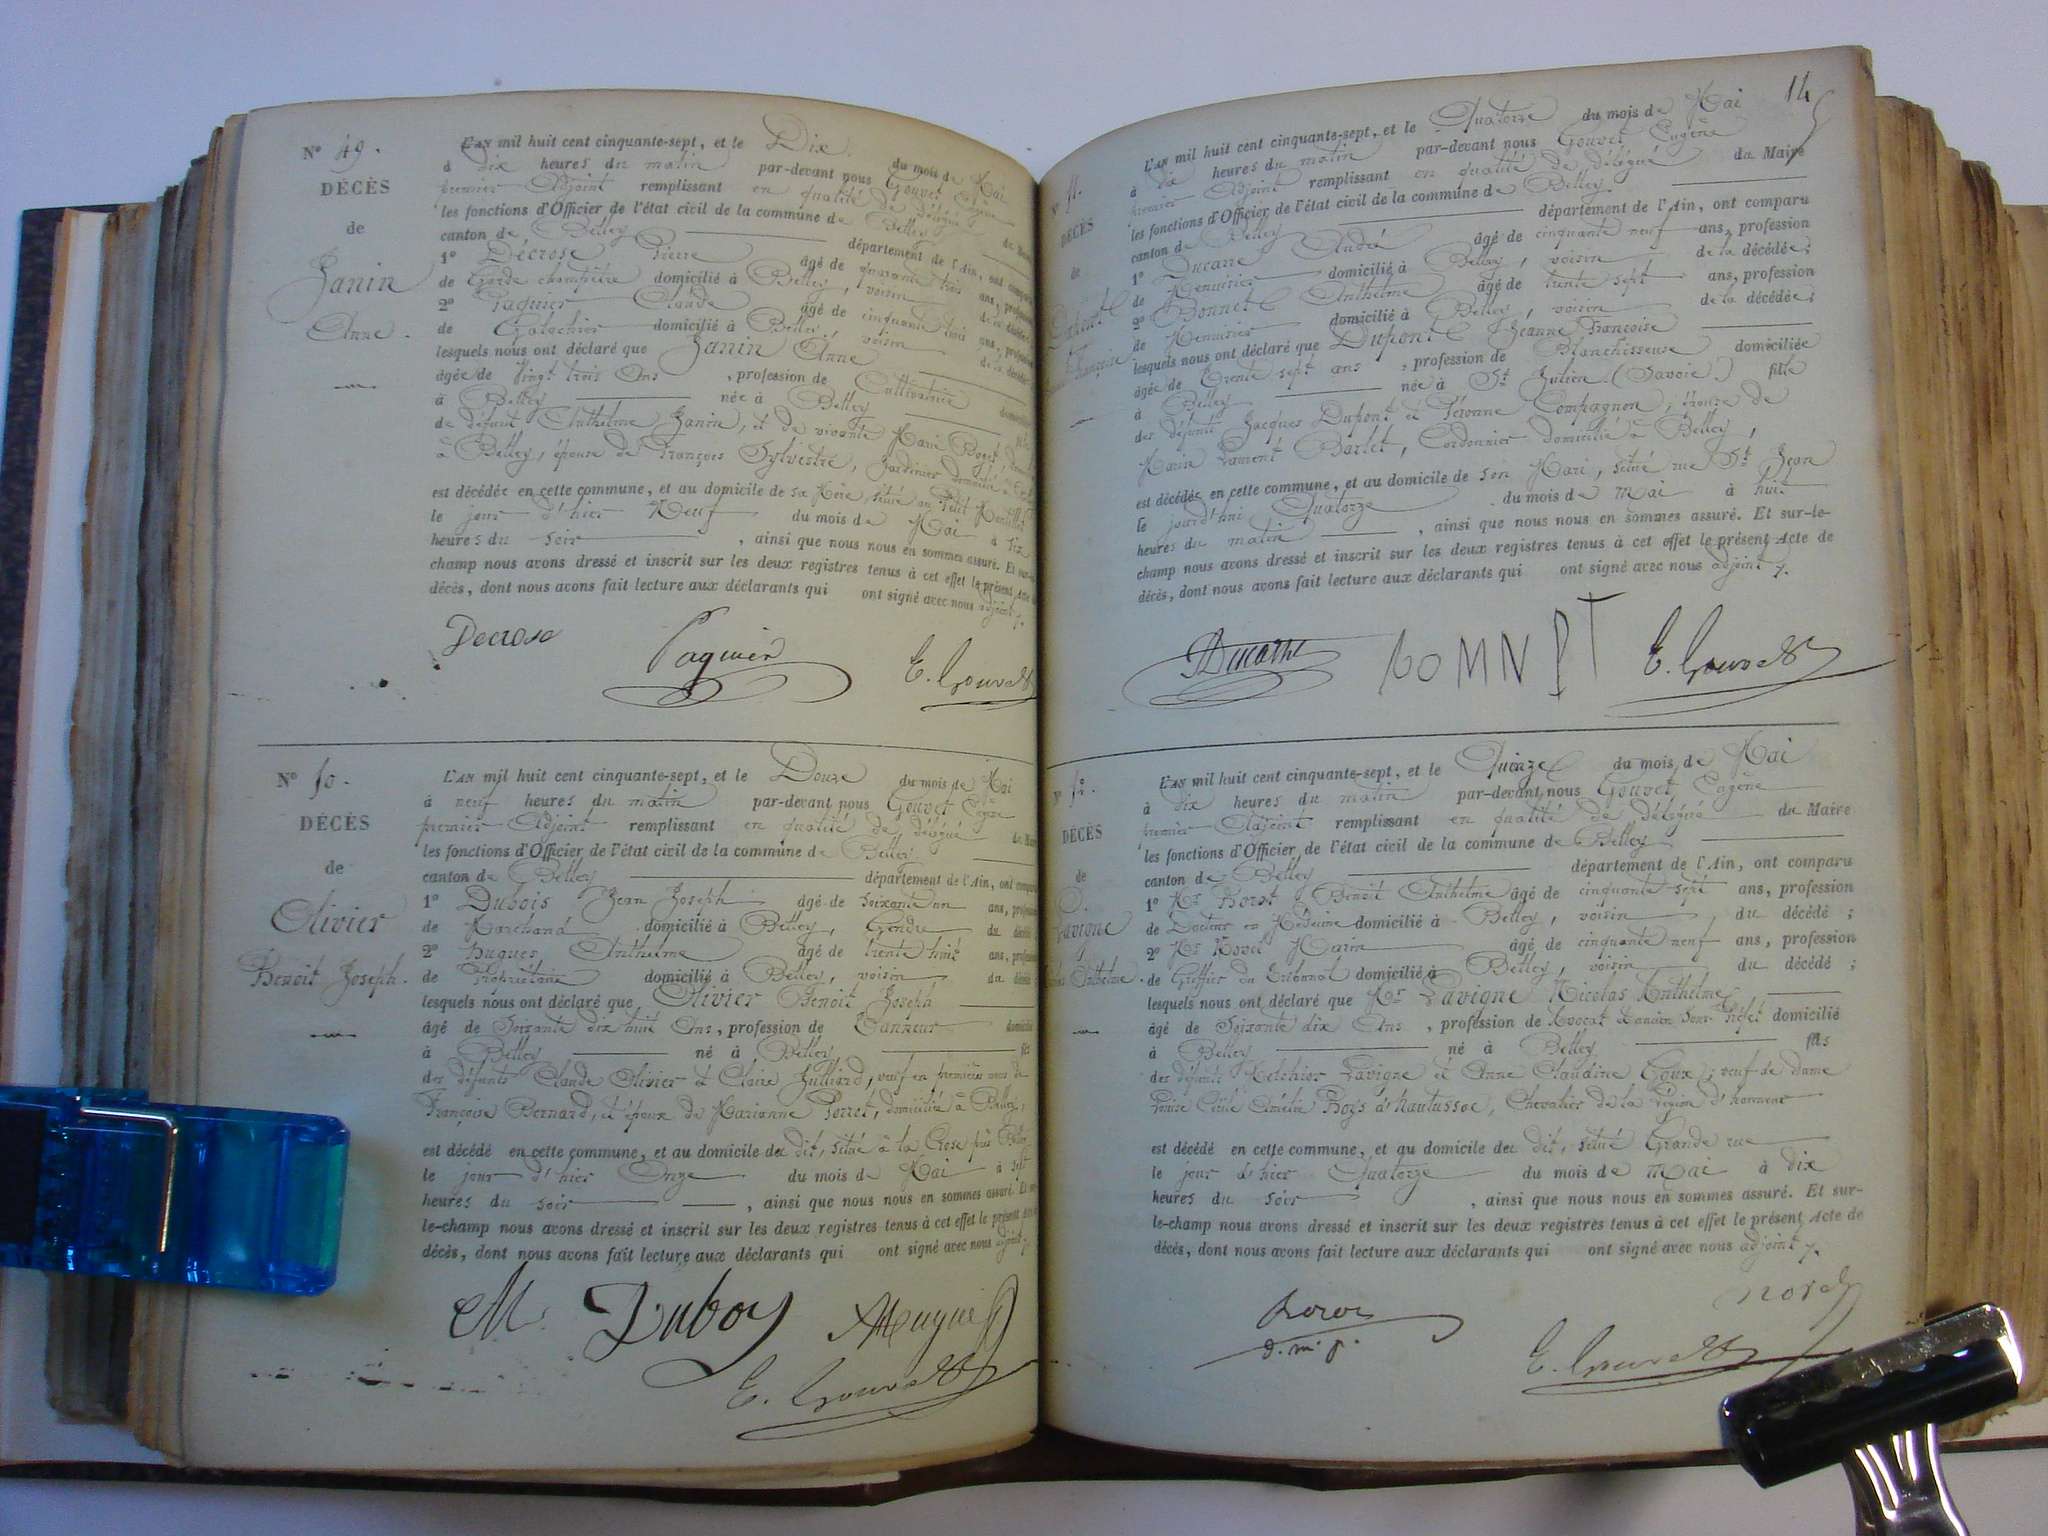 Nº 49.
DÉCÈS
de
Janin
Anne.
L'AN mil huit cent cinquante-sept, et le Dix du mois de Mai
à dix heures du matin par-devant nous Gouvet Eugène
premier Adjoint remplissant en qualité de délégué du Maire
les fonctions d'Officier de l'état civil de la commune de Belley
canton de Belley département de l'Ain, ont comparu
1º Décrose Pierre âgé de quarante trois ans, profession
de Garde champêtre domicilié à Belley, voisin de la décédée
2º Paquier Claude âgé de cinquante trois ans, profession
de Galochier domicilié à Belley, voisin de la décédée
lesquels nous ont déclaré que Janin Anne
âgée de Vingt trois Ans, profession de Cultivatrice domiciliée
à Belley née à Belley fille
de défunt Anthelme Janin, et de vivante Marie Roget,
à Belley, épouse de François Sylvestre, Jardinier domicilié à
est décédée en cette commune, et au domicile de sa Mère situé au
le jour d'hier Neuf du mois de Mai à six
heures du soir, ainsi que nous nous en sommes assuré. Et sur-le-
champ nous avons dressé et inscrit sur les deux registres tenus à cet effet le présent acte de
décès, dont nous avons fait lecture aux déclarants qui ont signé avec nous adjoint.
Decrose Paquier E. Gouvet
Nº 50.
DÉCÈS
de
Olivier
Benoit Joseph.
L'AN mil huit cent cinquante-sept, et le Douze du mois de Mai
à neuf heures du matin par-devant nous Gouvet Eugène
premier Adjoint remplissant en qualité de délégué du Maire
les fonctions d'Officier de l'état civil de la commune de Belley
canton de Belley département de l'Ain, ont comparu
1º Dubois Jean Joseph âgé de soixante un ans, profession
de Marchand domicilié à Belley, Gendre du décédé
2º Hugues Anthelme âgé de trente huit ans, profession
de Propriétaire domicilié à Belley, voisin du décédé
lesquels nous ont déclaré que Olivier Benoit Joseph
âgé de Soixante dix huit Ans, profession de Tanneur domicilié
à Belley né à Belley fils
des défunts Claude Olivier et Claire Julliard, veuf en premières noces de
Françoise Bernard, et époux de Marianne Perret, domiciliée à Belley,
est décédé en cette commune, et au domicile du dit, situé à la Crose près Belley
le jour d'hier Onze du mois de Mai à sept
heures du soir, ainsi que nous nous en sommes assuré. Et sur-
le-champ nous avons dressé et inscrit sur les deux registres tenus à cet effet le présent acte de
décès, dont nous avons fait lecture aux déclarants qui ont signé avec nous adjoint.
Duboy AHugues
E. Gouvet
14
Nº 51.
DÉCÈS
de
Dupont
Jeanne Françoise
L'AN mil huit cent cinquante-sept, et le Quatorze du mois de Mai
à dix heures du matin par-devant nous Gouvet Eugène
premier Adjoint remplissant en qualité de délégué du Maire
les fonctions d'Officier de l'état civil de la commune de Belley
canton de Belley département de l'Ain, ont comparu
1º Ducarre André âgé de cinquante neuf ans, profession
de Menuisier domicilié à Belley, voisin de la décédée;
2º Bonnet Anthelme âgé de trente sept ans, profession
de Menuisier domicilié à Belley, voisin de la décédée;
lesquels nous ont déclaré que Dupont Jeanne Françoise
âgée de Trente sept ans, profession de Blanchisseuse domiciliée
à Belley née à St Julien (Savoie) fille
des défunts Jacques Dupont et Péronne Compagnon; épouse de
Marin Laurent Barlet, Cordonnier domicilié à Belley,
est décédée en cette commune, et au domicile de son Mari, situé rue St Jean
le jourd'hui Quatorze du mois de mai à huit
heures du matin, ainsi que nous nous en sommes assuré. Et sur-le-
champ nous avons dressé et inscrit sur les deux registres tenus à cet effet le présent Acte de
décès, dont nous avons fait lecture aux déclarants qui ont signé avec nous adjoint.
E. Gouvet
Nº 52.
DÉCÈS
de
Lavigne
Nicolas Anthelme.
L'AN mil huit cent cinquante-sept, et le Quinze du mois de Mai
à dix heures du matin par-devant nous Gouvet Eugène
premier Adjoint remplissant en qualité de Délégué du Maire
les fonctions d'Officier de l'état civil de la commune de Belley
canton de Belley département de l'Ain, ont comparu
1º Mr Benoit Anthelme âgé de cinquante sept ans, profession
de Docteur en Médecine domicilié à Belley, voisin du décédé;
2º Mr Morel Marin âgé de cinquante neuf ans, profession
de Greffier du Tribunal domicilié à Belley, voisin du décédé;
lesquels nous ont déclaré que Mr Lavigne Nicolas Anthelme
âgé de Soixante dix Ans, profession de Avocat & ancien Sous Préfet domicilié
à Belley né à Belley fils
des défunts Melchior Lavigne et Anne Claudine Goux; veuf de dame
Louise Cécile Amélie Roys d'hautussoc, Chevalier de la Légion d'honneur
est décédé en cette commune, et au domicile du dit, situé Grande rue
le jour d'hier Quatorze du mois de Mai à dix
heures du soir, ainsi que nous nous en sommes assuré. Et sur-
le-champ nous avons dressé et inscrit sur les deux registres tenus à cet effet le présent Acte de
décès, dont nous avons fait lecture aux déclarants qui ont signé avec nous adjoint.
d. m. p.
morel
E. Gouvet